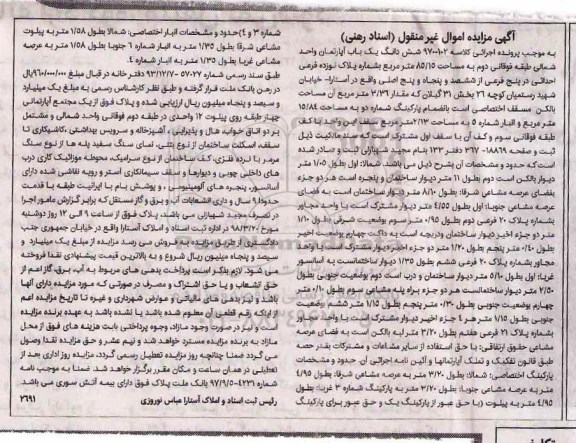 آگهی مزایده اموال غیر منقول (اسناد رهنی)
به موجب پرونده اجرائی کلاسه ۹۷۰۰۱۰۲ شش دانگ یک باب آپارتمان واحد
شمالی طبقه فوقانی دوم به مساحت ۸۵/۱۵ متر مربع بشماره پلاک نوزده فرعی
احداثی در پنج فرعی از ششصد و پنجاه و پنج اصلی واقع در آستارا- خیابان
شهید رستمیان کوچه ۲۶ بخش ۳۱ گیلان که مقدار ۳/۳۶ متر مربع آن مساحت
بالکن مسقف اختصاصی است بانضمام پارکینگ شماره دو به مساحت ۱۵/۸۴
متر مربع و انبار شماره ۵ به مساحت ۲/۱۳ متر مربع سقف این واحد با کف
طبقه فوقانی سوم و کف آن با سقف اول مشترک است که سند مالکیت ذیل
ثبت و صفحه ۱۸۸۶۹- ۳۶۷ دفتر ۱۳۳ بنام مجید شهبازلی ثبت و صادر شده
است که حدود و مشخصات آن بشرح ذیل می باشد. شمالا: اول بطول ۱/۰۵ متر
دیوار بالکن است دوم بطول ۱۱ متر دیوار ساختمان و پنجره است هر دو جزء
بفضای عرصه مشاعی شرقا: بطول ۸/۱۰ متر دیوار ساختمان است به فضای
عرصه مشاعی جنوبا: اول بطول ۴/۵۵ متر دیوار مشترک است با واحد مجاور
بشماره پلاک ۲۰ فرعی دوم بطول ۰/۹۵ متر سوم بوضعیت شرقی بطول ۱/۱۰
متر دو جزء اخیر دیوار ساختمان ودریچه است به داکت چهارم بوضعیت اخیر
بطول ۰/۴۰ متر پنجم بطول ۱/۲۰ متر دو جزء اخیر دیوار مشترک است با واحد
مجاور بشماره پلاک ۲۰ فرعی ششم بطول ۱/۳۵ دیوار ساختمانست به آسانسور
غربا: اول بطول ۵/۱۰ متر دیوار ساختمان و درب است دوم بوضعیت جنوبی بطول
۲/۵۰ متر دیوار ساختمانست هر دو جزء براه پله مشاعی سوم بطول ۰/۱۰ متر
چهارم بوضعیت جنوبی بطول ۰/۳۰ متر پنجم بطول ۱/۱۵ متر ششم بوضعیت
جنوبی بطول ۱/۱۵ متر هر ۴ جزء اخیر دیوار مشترک است با واحد مجاور
بشماره پلاک ۲۱ فرعی هفتم بطول ۳/۲۰ متر لبه بالکن است به فضای عرصه
مشاعی حقوق ارتفاقی: با حق استفاده از سایر مشاعات و مشترکات بقدر حصه
طبق قانون تفکیک و تملک آپارتمانها و آئین نامه اجرائی آن. حدود و مشخصات
پارکینگ اختصاصی: شمالا: بطول ۳/۲۰ متر به عرصه مشاعی شرقا: بطول ۴/۹۵
متر به عرصه مشاعی جنوبا: بطول ۳/۲۰ متر به پارکینگ شماره ۳ غربا: بطول
۴/۹۵ متر به پیلوت (با حق عبور از پارکینگ یک و حق عبور برای پارکینگ
شماره ۳ و ۴) حدود و مشخصات انبار اختصاصی: شمالا بطول ۱/۵۸ متر به پیلوت
مشاعی شرقا بطول ۱/۳۵ متر به انبار شماره ۶ جنوبا بطول ۱/۵۸ متر به عرصه
مشاعی غربا بطول ۱/۳۵ متر به انبار شماره ۴.
طبق سند رسمی شماره ۵۷۰۲۷- ۹۳/۱۲/۷ دفتر خانه در قبال مبلغ ۹۶۰/۰۰۰/۰۰۰ ریال
در رهن بانک ملت قرار گرفته و طبق نظر کارشناس رسمی به مبلغ یک میلیارد
و سیصد و پنجاه میلیون ریال ارزیابی شده و پلاک فوق از یک مجتمع آپارتمانی
چهار طبقه روی پیلوت ۱۲ واحدی در طبقه دوم فوقانی واحد شمالی و مشتمل
بر دو اتاق خواب، هال و پذیرایی، آشپزخانه و سرویس بهداشتی ،کاشیکاری تا
سقف، اسکلت ساختمان از نوع بتنی، نمای سنگ سفید پله ها از نوع سنگ
مرمر با نرده فلزی، کف ساختمان از نوع سرامیک، محوطه موزائیک کاری درب
های داخلی چوبی و دیوارها و سقف سیمانکاری آستر و رویه نقاشی شده دارای
آسانسور، پنجره های آلومینیومی، و پوشش بام با ایرانیت طبقه با قدمت
حدودا ۹ سال و دارای انشعابات آب و برق و گاز مستقل که برابر گزارش مامور اجرا
در تصرف مجید شهبازلی می باشد، پلاک فوق از ساعت ۹ الی ۱۲ روز دوشنبه
مورخ ۹۸/۳/۲۰ در اداره ثبت اسناد و املاک آستارا واقع در خیابان جمهوری جنب
دادگستری از طریق مزایده به فروش می رسد مزایده از مبلغ یک میلیارد و
سیصد و پنجاه میلیون ریال شروع و به بالاترین قیمت پیشنهادی نقدا فروخته
می شود. لازم بذکر است پرداخت بدهی های مربوط به آب، برق، گاز اعم از
حق انشعاب و یا حق اشتراک و مصرف در صورتی که مورد مزایده دارای آنها
باشد و نیز بدهی های مالیاتی و عوارض شهرداری و غیره تا تاریخ مزایده اعم
از اینکه رقم قطعی آن معلوم شده باشد یا نشده باشد به عهده برنده مزایده
است و نیز در صورت وجود مازاد، وجوه پرداختی بابت هزینه های فوق از محل
مازاد به برنده مزایده مسترد خواهد شد و نیم عشر و حق مزایده نقدا وصول
می گردد ضمنا چنانچه روز مزایده تعطیل رسمی گردد، مزایده روز اداری بعد از
تعطیلی در همان ساعت و مکان مقرر برگزار خواهد شد. ضمنا به موجب نامه
شماره ۴۲۳۱- ۹۷/۹/۵ بانک ملت پلاک فوق دارای بیمه آتش سوزی می باشد.
رئیس ثبت اسناد و املاک آستارا عباس نوروزی ۲۶۹۱